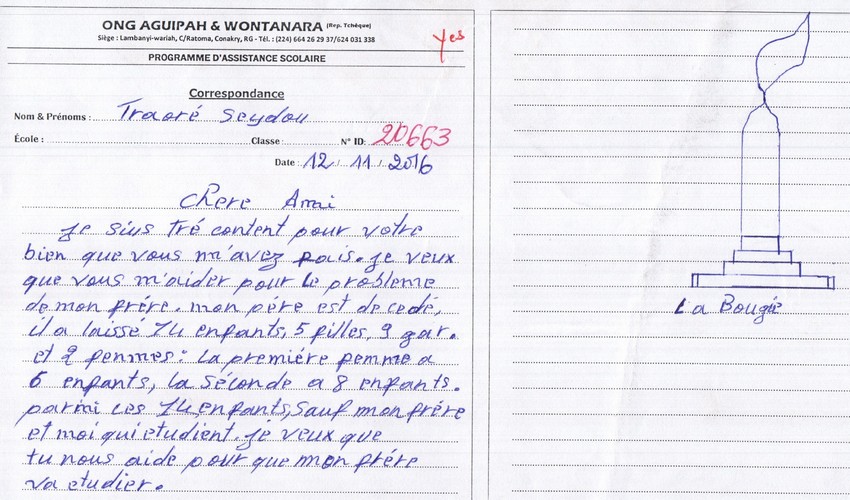 ONG AGUIPAH & WONTANARA (Rep. Tchèque)
Siège : Lambanyi-wariah, C/Ratoma, Conakry, RG - Tél. : (224) 664 26 29 37/624 031 338
yes
PROGRAMME D'ASSISTANCE SCOLAIRE
Correspondance
Nom & Prénoms : Traoré Seydou
École : Classe : N° ID: 20663
Date : 12 / 11 / 2016
chere Amai
Je sius tré content pour votre
bien que vous m'avez pais. Je veux
que vous m'aider pour le probleme
de mon frére. mon pére est decedé,
il a laissé 14 enfants, 5 filles, 9 gar.
et 2 pemmes: la premiére pemme a
6 enfants, la séconde a 8 enfants.
parmi les 14 enfants, sauf mon frére
et moi qui etudient. Je veux que
tu nous aide pour que mon frére
va etudier.
La Bougie